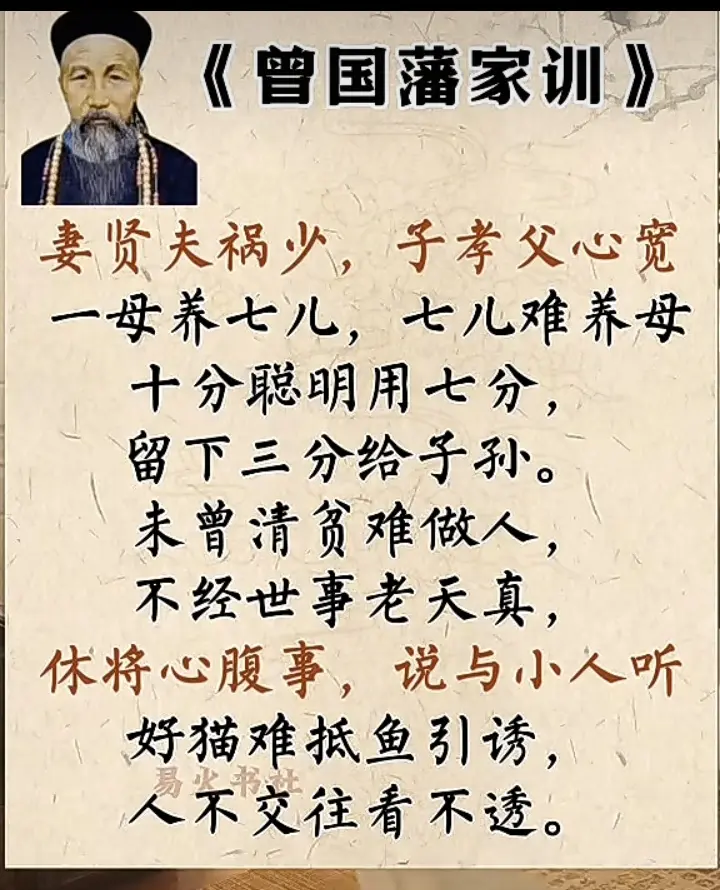 《曾国藩家训》
妻贤夫祸少，子孝父心宽
一母养七儿，七儿难养母
十分聪明用七分，
留下三分给子孙。
未曾清贫难做人，
不经世事老天真，
休将心腹事，说与小人听
好猫难抵鱼引诱，
易火书社
人不交往看不透。